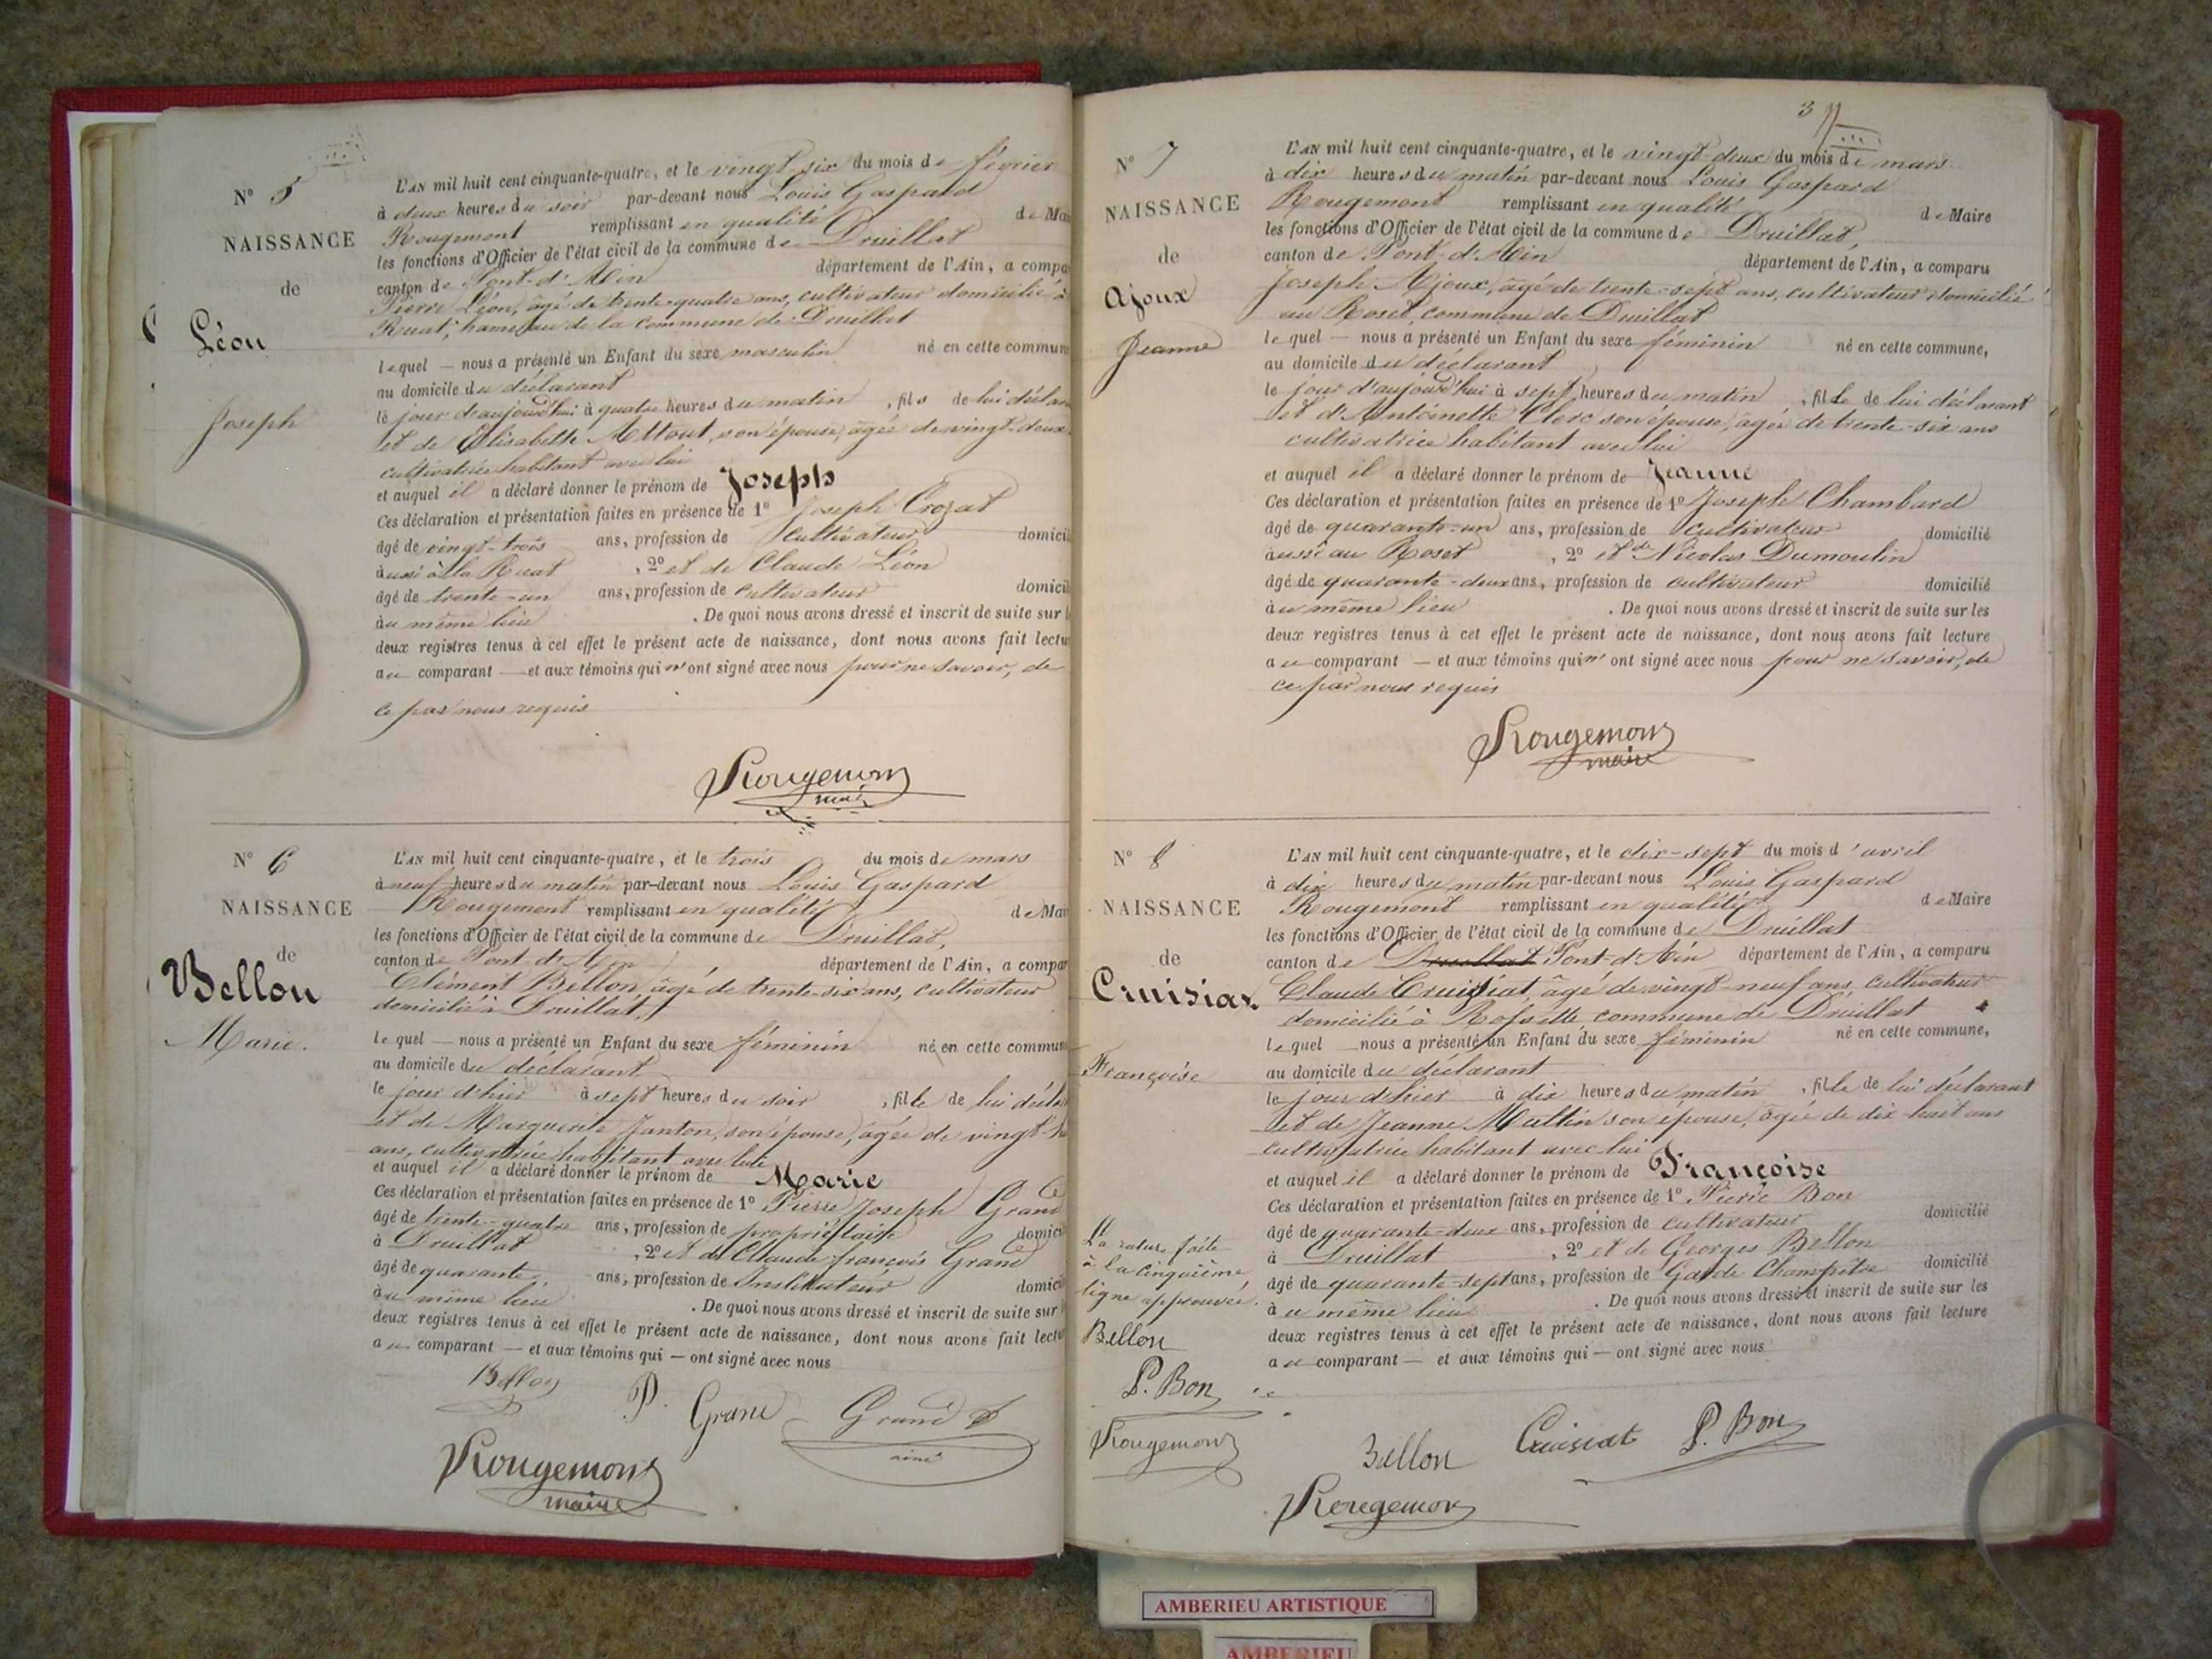 N° 5
NAISSANCE
de
Léon
Joseph
L'AN mil huit cent cinquante-quatre, et le vingt-six du mois de février
à deux heures du soir par-devant nous Louis Gaspard
Rougemont remplissant en qualité de Mai
les fonctions d'Officier de l'état civil de la commune de Druillat
canton de Pont-d'Ain département de l'Ain, a compa
Pierre Léon, âgé de trente-quatre ans, cultivateur domicilié à
Ruat, hameau de la commune de Druillat
lequel — nous a présenté un Enfant du sexe masculin né en cette commun
au domicile du déclarant
le jour d'aujourd'hui à quatre heures du matin, fils de lui déclar
et de Elisabeth son épouse, âgée de vingt-deux
cultivatrice habitant avec lui
et auquel il a déclaré donner le prénom de Joseph
Ces déclaration et présentation faites en présence de 1° Joseph Crozat
âgé de vingt-trois ans, profession de cultivateur domici
à aussi à la Ruat, 2° et de Claude Léon
âgé de trente-un ans, profession de cultivateur domicil
au même lieu. De quoi nous avons dressé et inscrit de suite sur l
deux registres tenus à cet effet le présent acte de naissance, dont nous avons fait lectu
au comparant — et aux témoins qui n'ont signé avec nous pour ne savoir, de
ce par nous requis
Rougemont
maire
N° 6
NAISSANCE
de
Bellon
Marie.
L'AN mil huit cent cinquante-quatre, et le trois du mois de mars
à neuf heures du matin par-devant nous Louis Gaspard
Rougemont remplissant en qualité de Mai
les fonctions d'Officier de l'état civil de la commune de Druillat,
canton de Pont-d'Ain département de l'Ain, a compar
Clément Bellon, âgé de trente-six ans, cultivateur
domicilié à Druillat,
lequel — nous a présenté un Enfant du sexe féminin né en cette commun
au domicile du déclarant
le jour d'hier à sept heures du soir, fille de lui décla
et de Marguerite Janton, son épouse, âgée de vingt-
ans, cultivatrice habitant avec lui
et auquel il a déclaré donner le prénom de Marie
Ces déclaration et présentation faites en présence de 1° Pierre Joseph Grand
âgé de trente-quatre ans, profession de propriétaire domici
à Druillat, 2° et de Claude françois Grand
âgé de quarante, ans, profession de Instituteur domici
au même lieu. De quoi nous avons dressé et inscrit de suite sur
deux registres tenus à cet effet le présent acte de naissance, dont nous avons fait lectu
au comparant — et aux témoins qui — ont signé avec nous
Bellon P. Grand Grand
ainé
Rougemont
maire
3
N° 7
NAISSANCE
de
Ajoux
Jeanne
L'AN mil huit cent cinquante-quatre, et le vingt-deux du mois de mars
à dix heures du matin par-devant nous Louis Gaspard
Rougemont remplissant en qualité de Maire
les fonctions d'Officier de l'état civil de la commune de Druillat,
canton de Pont-d'Ain département de l'Ain, a comparu
Joseph Ajoux, âgé de trente-sept ans, cultivateur domicilié
au Roset, commune de Druillat
lequel — nous a présenté un Enfant du sexe féminin né en cette commune,
au domicile du déclarant
le jour d'aujourd'hui à sept heures du matin, fille de lui déclarant
et d'Antoinette Clerc son épouse, âgée de trente-six ans
cultivatrice habitant avec lui
et auquel il a déclaré donner le prénom de Jeanne
Ces déclaration et présentation faites en présence de 1° Joseph Chambard
âgé de quarante-un ans, profession de cultivateur domicilié
à aussi au Roset, 2° et de Nicolas Dumoulin
âgé de quarante-deux ans, profession de cultivateur domicilié
au même lieu. De quoi nous avons dressé et inscrit de suite sur les
deux registres tenus à cet effet le présent acte de naissance, dont nous avons fait lecture
au comparant — et aux témoins qui n'ont signé avec nous pour ne savoir, de
ce par nous requis
Rougemont
maire
N° 8
NAISSANCE
de
Cruisiat
Françoise
La rature faite
à la cinquième
ligne approuvée.
Bellon
P. Bon
Rougemont
L'AN mil huit cent cinquante-quatre, et le dix-sept du mois d'avril
à dix heures du matin par-devant nous Louis Gaspard
Rougemont remplissant en qualité de Maire
les fonctions d'Officier de l'état civil de la commune de Druillat
canton de Druillat Pont-d'Ain département de l'Ain, a comparu
Claude Cruisiat, âgé de vingt-neuf ans, cultivateur
domicilié à Rossette commune de Druillat
lequel — nous a présenté un Enfant du sexe féminin né en cette commune,
au domicile du déclarant
le jour d'hier à dix heures du matin, fille de lui déclarant
et de Jeanne Multin son épouse, âgée de dix-huit ans
cultivatrice habitant avec lui
et auquel il a déclaré donner le prénom de Françoise
Ces déclaration et présentation faites en présence de 1° Pierre Bon
âgé de quarante-deux ans, profession de cultivateur domicilié
à Druillat, 2° et de Georges Bellon
âgé de quarante-sept ans, profession de Garde Champêtre domicilié
au même lieu. De quoi nous avons dressé et inscrit de suite sur les
deux registres tenus à cet effet le présent acte de naissance, dont nous avons fait lecture
au comparant — et aux témoins qui — ont signé avec nous
Bellon Cruisiat P. Bon
Rougemont
AMBERIEU ARTISTIQUE
AMBERIEU